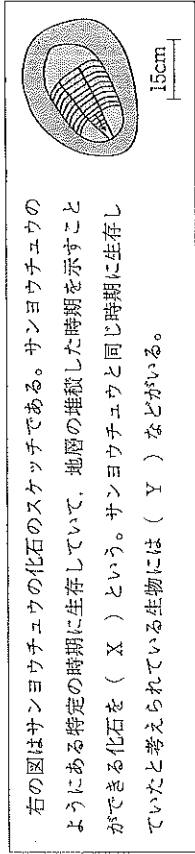 右の図はサンヨウチュウの化石のスケッチである。サンヨウチュウの
ようにある特定の時期に生存していて，地層の堆積した時期を示すこと
ができる化石を（　X　）という。サンヨウチュウと同じ時期に生存し
ていたと考えられている生物には（　Y　）などがいる。
15cm